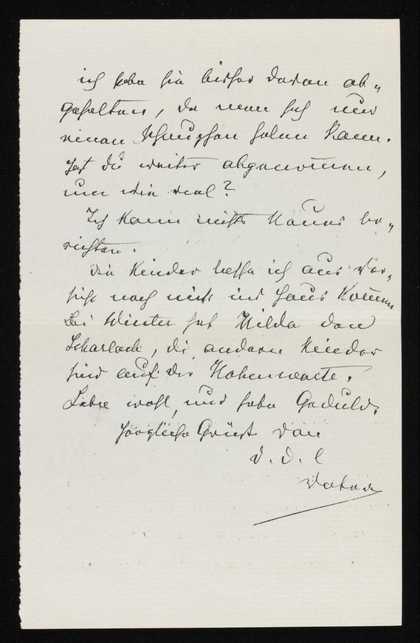 ich habe sie bisher davon ab-
gehalten, da man sich nur
einen Schnupfen holen kann.
Hast du weiter abgenommen,
um wie viel?
Ich kann nichts Neues be-
richten.
Die Kinder lasse ich aus Vor-
sicht noch nicht ins Haus kommen
Bei Winter hat Hilda den
Scharlach, die andern Kinder
sind auf der Hohenwarte.
Lebe wohl, und habe Geduld.
Herzliche Grüße von
D. D. l
Vater